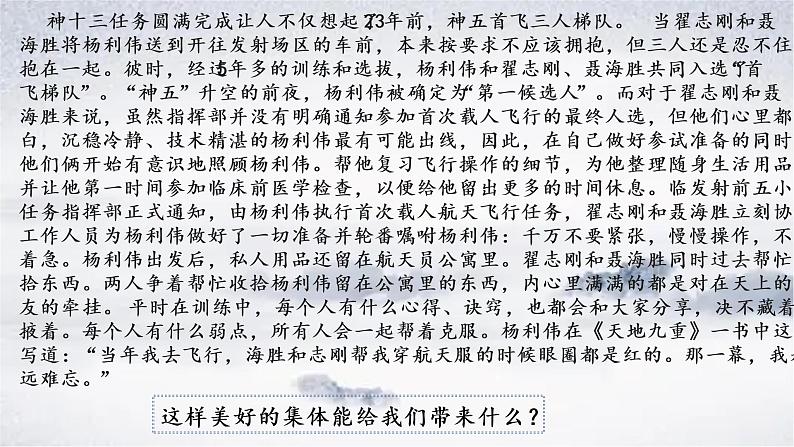 神十三任务圆满完成让人不仅想起了23年前，神五首飞三人梯队。 当翟志刚和聂
海胜将杨利伟送到开往发射场区的车前，本来按要求不应该拥抱，但三人还是忍不住
抱在一起。彼时，经过5年多的训练和选拔，杨利伟和翟志刚、聂海胜共同入选了“首
飞梯队”。“神五”升空的前夜，杨利伟被确定为“第一候选人”。而对于翟志刚、聂
海胜来说，虽然指挥部并没有明确通知参加首次载人飞行的最终人选，但他们心里都
白，沉稳冷静、技术精湛的杨利伟最有可能出线，因此，在自己做好参试准备的同时
他们俩开始有意识地照顾杨利伟。帮他复习飞行操作的细节，为他整理随身生活用品
并让他第一时间参加临床前医学检查，以便给他留出更多的时间休息。临发射前五小
任务指挥部正式通知，由杨利伟执行首次载人航天飞行任务，翟志刚和聂海胜立刻协
工作人员为杨利伟做好了一切准备并轮番嘱咐杨利伟：千万不要紧张，慢慢操作，不
着急。杨利伟出发后，私人用品还留在航天员公寓里。翟志刚和聂海胜同时过去帮忙
拾东西。两人争着帮忙收拾杨利伟留在公寓里的东西，内心里满满的都是对在天上的
友的牵挂。 平时在训练中，每个人有什么心得、诀窍，也都会和大家分享，决不藏着
掖着。每个人有什么弱点，所有人会一起帮着克服。杨利伟在《天地九重》一书中这
写道：“当年我去飞行，海胜和志刚帮我穿航天服的时候眼圈都是红的。那一幕，我
远难忘。”
这样美好的集体能给我们带来什么？